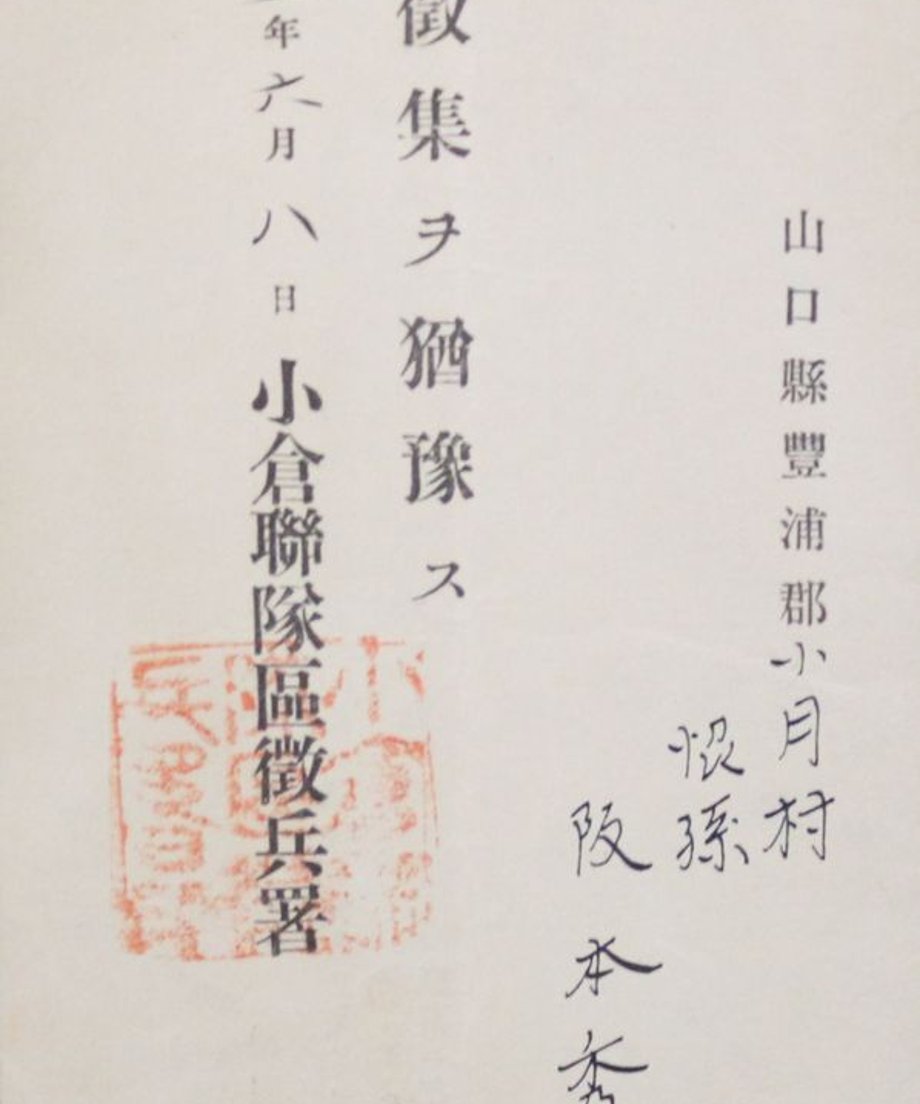 山口縣豐浦郡小月村
孫
阪本秀
徵集ヲ猶豫ス
年六月八日 小倉聯隊區徵兵署